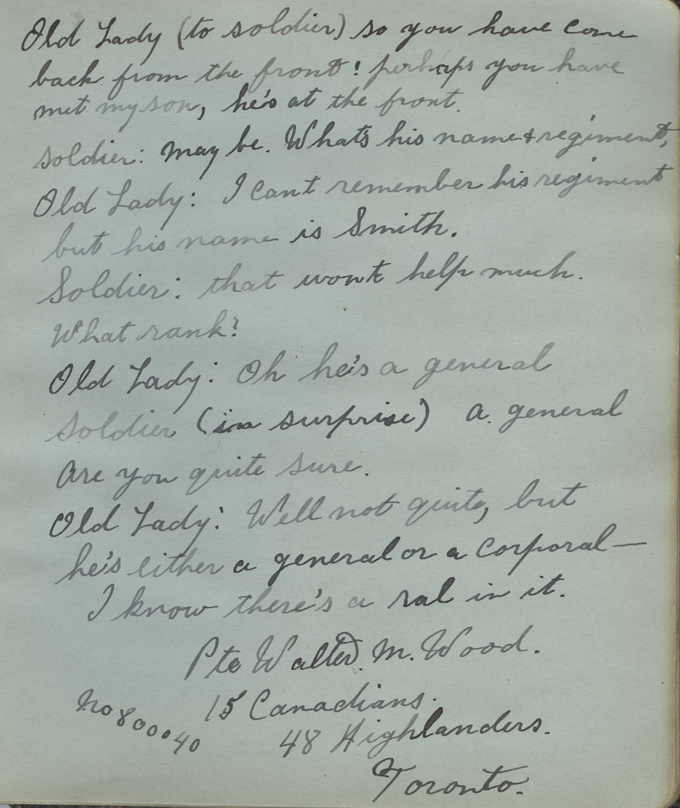 Old Lady (to soldier) so you have come
back from the front! perhaps you have
met my son, he's at the front.
soldier: may be. What's his name & regiment,
Old Lady: I cant remember his regiment
but his name is Smith.
Soldier: that wont help much.
What rank?
Old Lady: Oh he's a general
soldier (in surprise) a general
are you quite sure.
Old Lady: Well not quite, but
he's either a general or a corporal—
I know there's a ral in it.
Pte Walter. M. Wood.
No 800040
15 Canadians.
48 Highlanders.
Toronto.